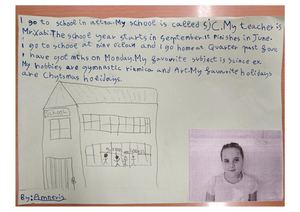 I go to school in My school is called SJC. My teacher is
Mr. The school year starts in September. It finishes in June.
I go to school at nine oclock and I go home at Quarter past four
I have got maths on Monday. My favourite subject is Science
My hobbies are gymnastic and Art. My favourite holidays
are holidays.
SCHOOL
By: